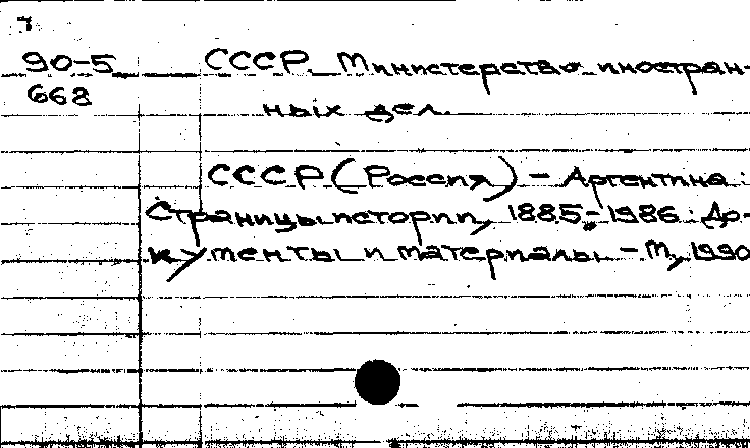 7
90-5 СССР. Министерство иностран-
668 ных дел.
СССР (Россия) - Аргентина:
Страницы истории, 1885-1986: До-
кументы и материалы. - М., 1990